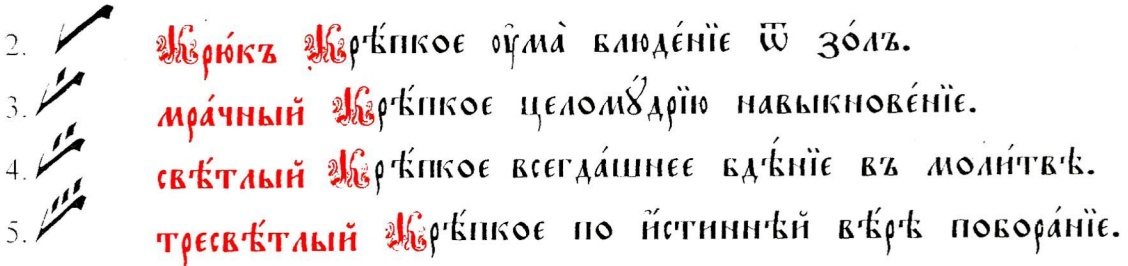 2. Крю́къ Крѣ́пкое ᲂу҆ма̀ блюде́нїе ѿ зо́лъ.
3. мра́чный Крѣ́пкое целомꙋ́дрїю навыкнове́нїе.
4. свѣ́тлый Крѣ́пкое всегда́шнее бдѣ́нїе въ моли́твѣ.
5. тресвѣ́тлый Крѣ́пкое по и҆́стиннѣй вѣ́рѣ побора́нїе.